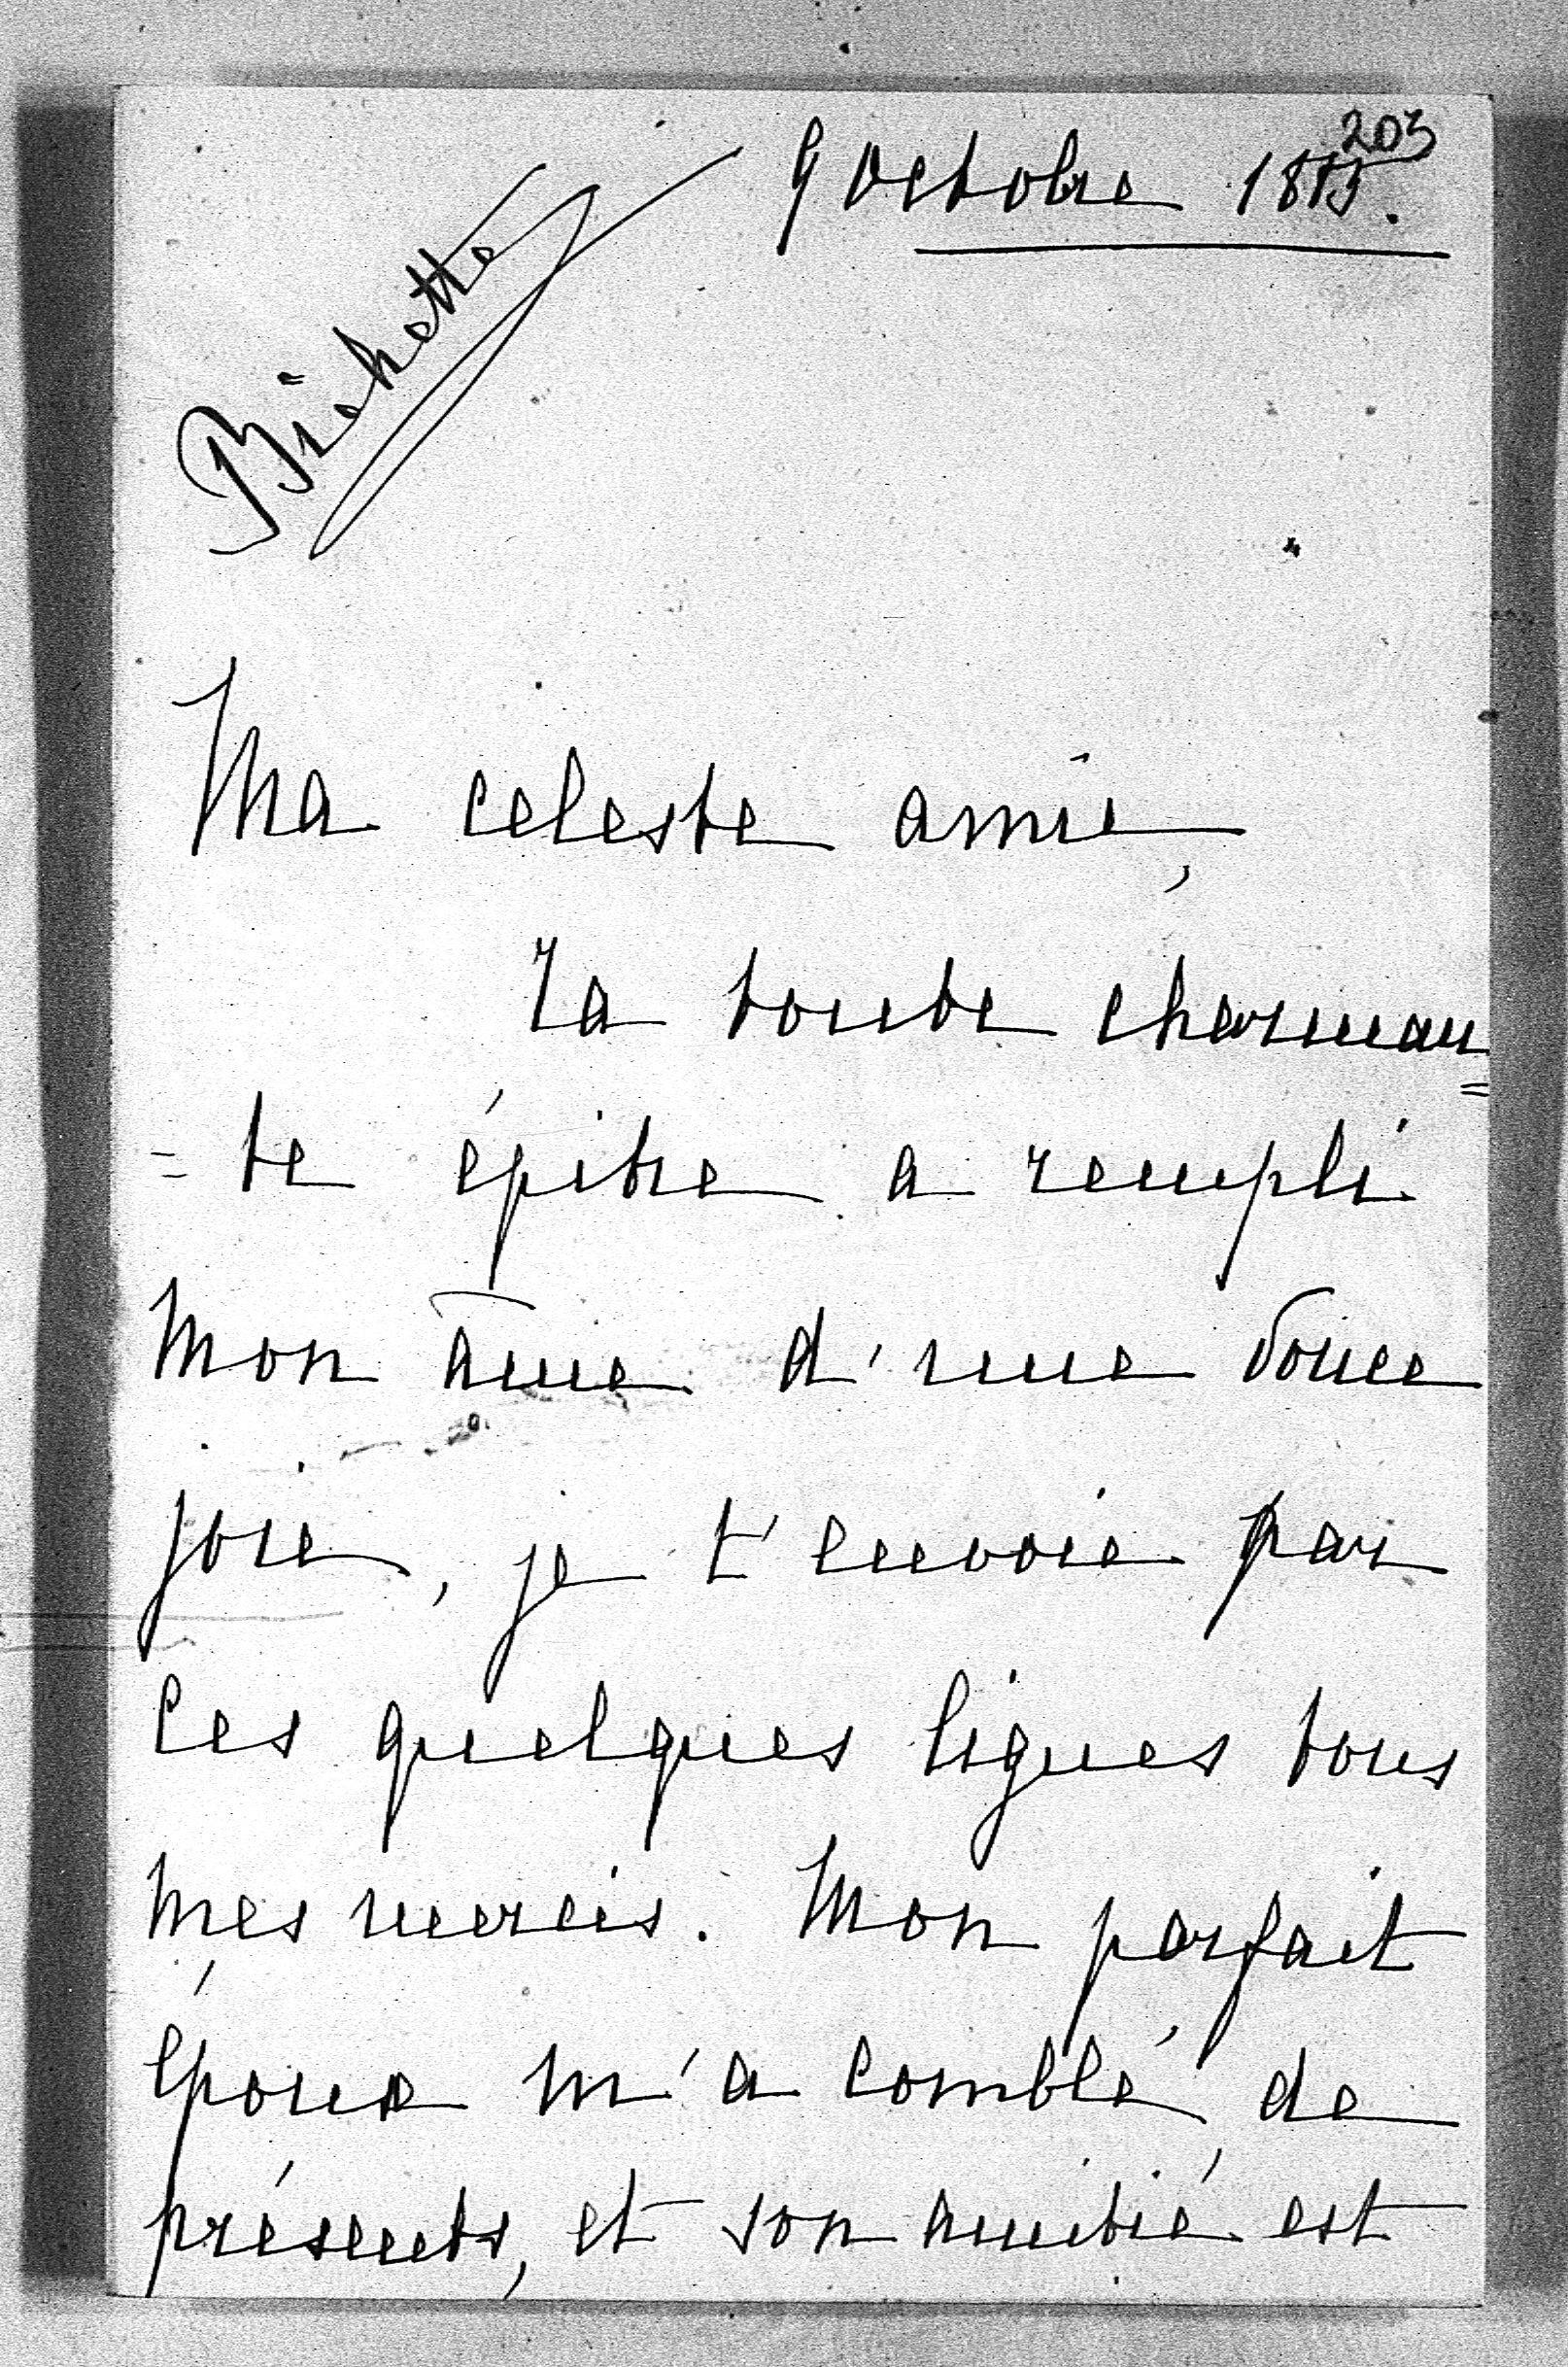 203
9 Octobre 1815.
Bichette
Ma celeste amie,
Ta toute charman=
=te épitre a rempli
mon âme d'une douce
joie, je t'envoie par
ces quelques lignes tous
mes mercis. Mon parfait
époux m'a comblé de
présents, et son amitié est